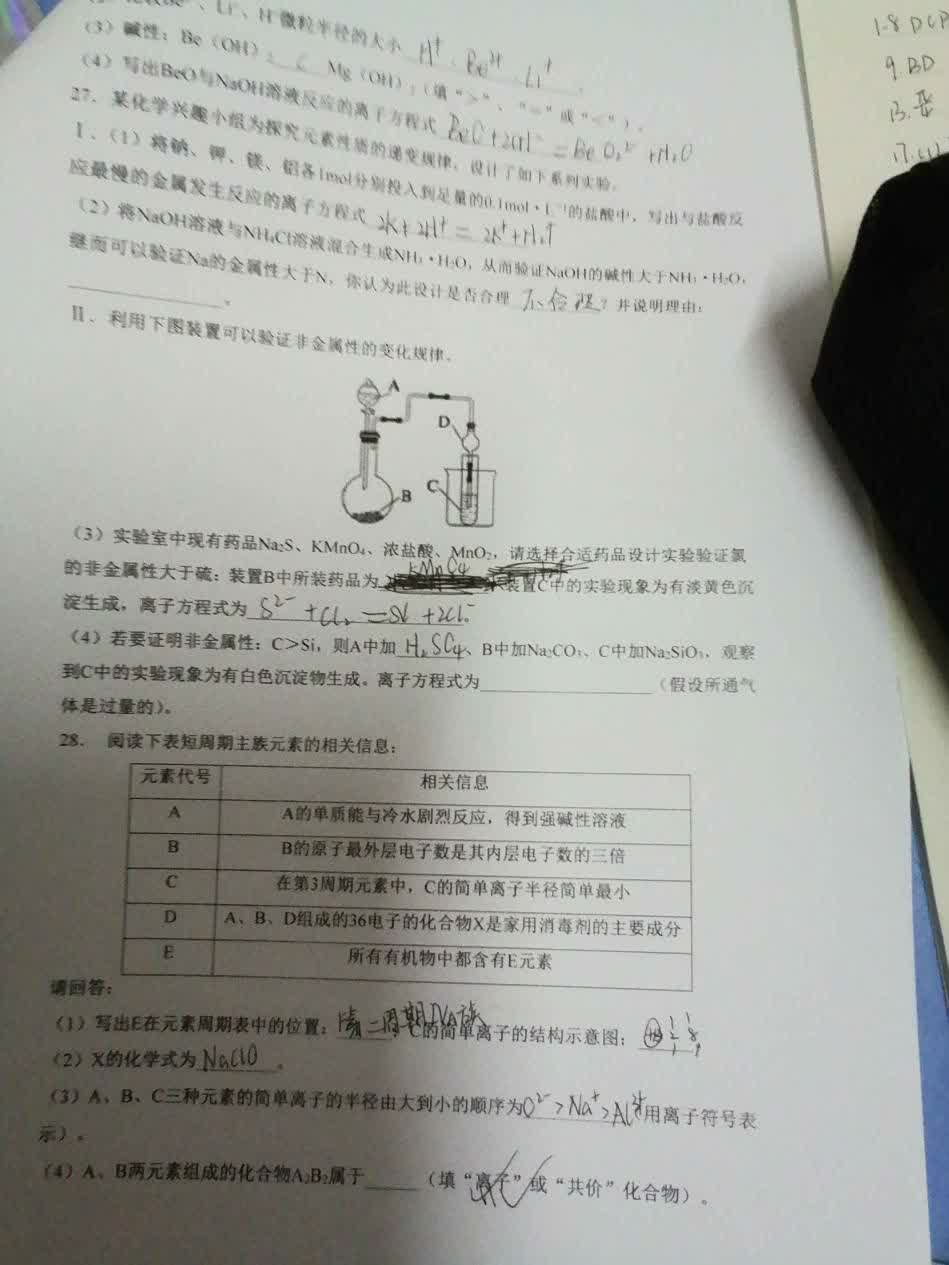 Li⁺、H⁻微粒半径的大小 H⁺ Be²⁺ Li⁺
(3) 碱性：Be (OH)₂ < Mg (OH)₂ (填“>”、“=”或“<”)。
(4) 写出BeO与NaOH溶液反应的离子方程式 BeO+2OH⁻=BeO₂²⁻+H₂O
27．某化学兴趣小组为探究元素性质的递变规律，设计了如下系列实验。
Ⅰ．(1) 将钠、钾、镁、铝各1mol分别投入到足量的0.1mol·L⁻¹的盐酸中，写出与盐酸反
应最慢的金属发生反应的离子方程式 2K+2H⁺=2K⁺+H₂↑
(2) 将NaOH溶液与NH₄Cl溶液混合生成NH₃·H₂O，从而验证NaOH的碱性大于NH₃·H₂O，
继而可以验证Na的金属性大于N，你认为此设计是否合理 不合理？并说明理由：
。
Ⅱ．利用下图装置可以验证非金属性的变化规律。
A
D
B
C
(3) 实验室中现有药品Na₂S、KMnO₄、浓盐酸、MnO₂，请选择合适药品设计实验验证氯
的非金属性大于硫：装置B中所装药品为 KMnO₄ 装置C中的实验现象为有淡黄色沉
淀生成，离子方程式为 S²⁻+Cl₂=S↓+2Cl⁻
(4) 若要证明非金属性：C>Si，则A中加 H₂SO₄、B中加Na₂CO₃、C中加Na₂SiO₃，观察
到C中的实验现象为有白色沉淀物生成。离子方程式为 (假设所通气
体是过量的)。
28． 阅读下表短周期主族元素的相关信息：
元素代号 相关信息
A A的单质能与冷水剧烈反应，得到强碱性溶液
B B的原子最外层电子数是其内层电子数的三倍
C 在第3周期元素中，C的简单离子半径简单最小
D A、B、D组成的36电子的化合物X是家用消毒剂的主要成分
E 所有有机物中都含有E元素
请回答：
(1) 写出E在元素周期表中的位置：第二周期ⅣA族；C的简单离子的结构示意图：
(2) X的化学式为 NaClO 。
(3) A、B、C三种元素的简单离子的半径由大到小的顺序为O²⁻>Na⁺>Al³⁺用离子符号表
示)。
(4) A、B两元素组成的化合物A₂B₂属于 (填“离子”或“共价”化合物)。
1-8 DCP
9.BD
13.
17.